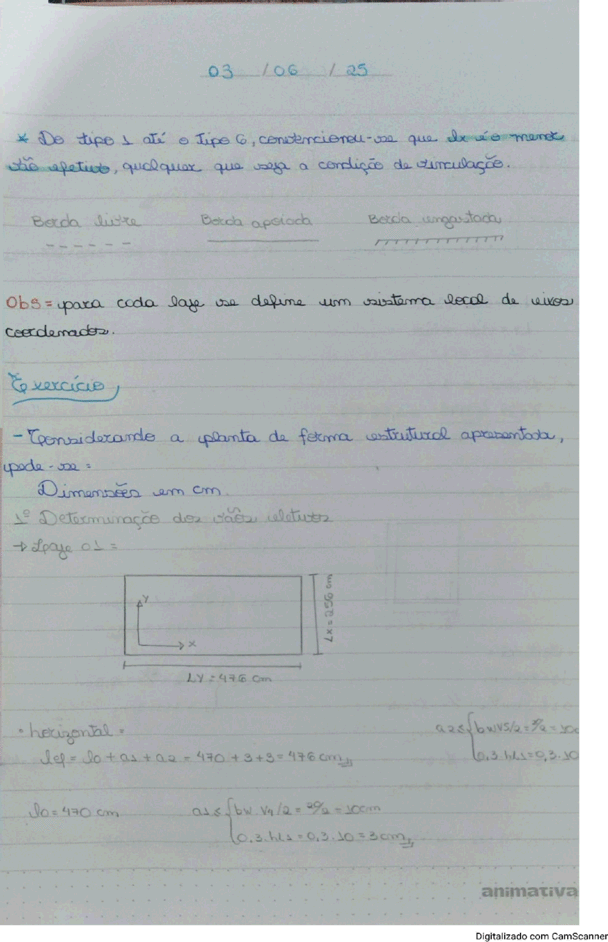 03 / 06 / 25
* Do tipo 1 até o tipo 6, convencionou-se que lx é o menor
vão efetivo, qualquer que seja a condição de vinculação.
Borda livre Borda apoiada Borda engastada
Obs = para cada laje se define um sistema local de eixos
coordenados.
Exercício,
- Considerando a planta de forma estrutural apresentada,
pede-se =
Dimensões em cm.
1º Determinação dos vãos efetivos
→ Laje 01 =
Y
X
Lx = 256 cm
LY = 476 cm
• horizontal =
lef = lo + a1 + a2 = 470 + 3 + 3 = 476 cm
a2 ≤ { bw V5/2 =
0,3 . hL1 = 0,3 . 10
lo = 470 cm
a1 ≤ { bw. V4/2 = 20/2 = 10cm
0,3 . hL1 = 0,3 . 10 = 3 cm
animativa
Digitalizado com CamScanner